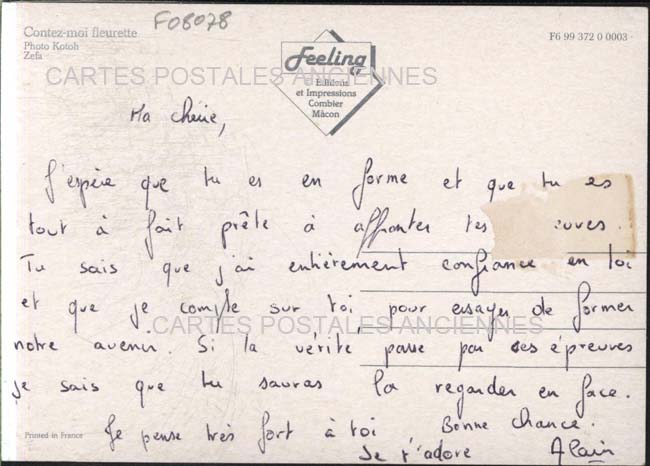 F08078
Contez-moi fleurette
Photo Kotoh
Zefa
F6 99 372 0 0003
Feeling
Editions
et Impressions
Combier
Mâcon
CARTES POSTALES ANCIENNES
Ma chérie,
J'espère que tu es en forme et que tu es
tout à fait prête à affronter tes euves.
Tu sais que j'ai entièrement confiance en toi
et que je compte sur toi pour essayer de former
CARTES POSTALES ANCIENNES
notre avenir. Si la vérité passe par ces épreuves
je sais que tu sauras la regarder en face.
Je pense très fort à toi Bonne chance.
Je t'adore Alain
Printed in France